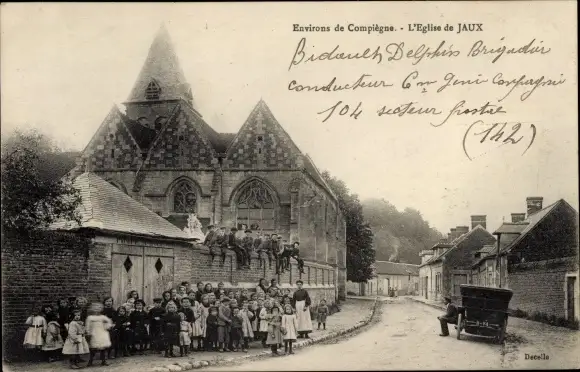 Environs de Compiègne. - L'Eglise de JAUX
Bidault Delphin Brigadier
Conducteur Cm Genie Compagnie
104 secteur postal
(142)
Decelle